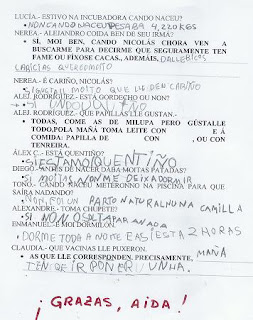 LUCÍA.- ESTIVO NA INCUBADORA CANDO NACEU?
NON CANDO NACEU PESABA 4,220 KGS
NEREA.- ALEJANDRO COIDA BEN DE SEU IRMÁ?
SÍ, MOI BEN, CANDO NICOLÁS CHORA VEN A
BUSCARME PARA DECIRME QUE SEGURAMENTE TEN
FAME OU FÍXOSE CACAS., ADEMÁIS, DALLE BICOS
CARICIAS
NEREA.- É CARIÑO, NICOLÁS?
MOITO QUE LLE DEN CARIÑO
ALEJ. RODRÍGUEZ.- ESTÁ GORDECHO OU NON?
SI UN POUQUIÑO
ALEJ. RODRÍGUEZ.- QUE PAPILLAS LLE GUSTAN.-
TODAS, COME AS DE MILUPA PERO GÚSTALLE
TODO,POLA MAÑÁ TOMA LEITE CON E Á
COMIDA: PAPILLA DE CON , OU CON
TENREIRA.
ÁLEX C.- ESTÁ QUENTIÑO?
SI ESTÁ MOI QUENTIÑO
DIEGO.- ANTES DE NACER DABA MOITAS PATADAS?
SI MOITAS NON ME DEIXABA DORMIR
TONO.- CANDO NACEU METÉRONNO NA PISCINA PARA QUE
SAÍRA NADANDO?
NON, FOI UN PARTO NATURAL NUNA CAMILLA
ALEXANDRE.- TOMA CHUPETE?
SI NON O SOLTA PARA NADA
ENMANUEL.- É MOI DORMILÓN.
DORME TODA A NOITE E AS SIESTA 2 HORAS
CLAUDIA.- QUE VACINAS LLE PUXERON.
AS QUE LLE CORRESPONDEN, PRECISAMENTE, MAÑÁ
TEN QUE IR POÑER UNHA.
¡GRAZAS, AIDA!